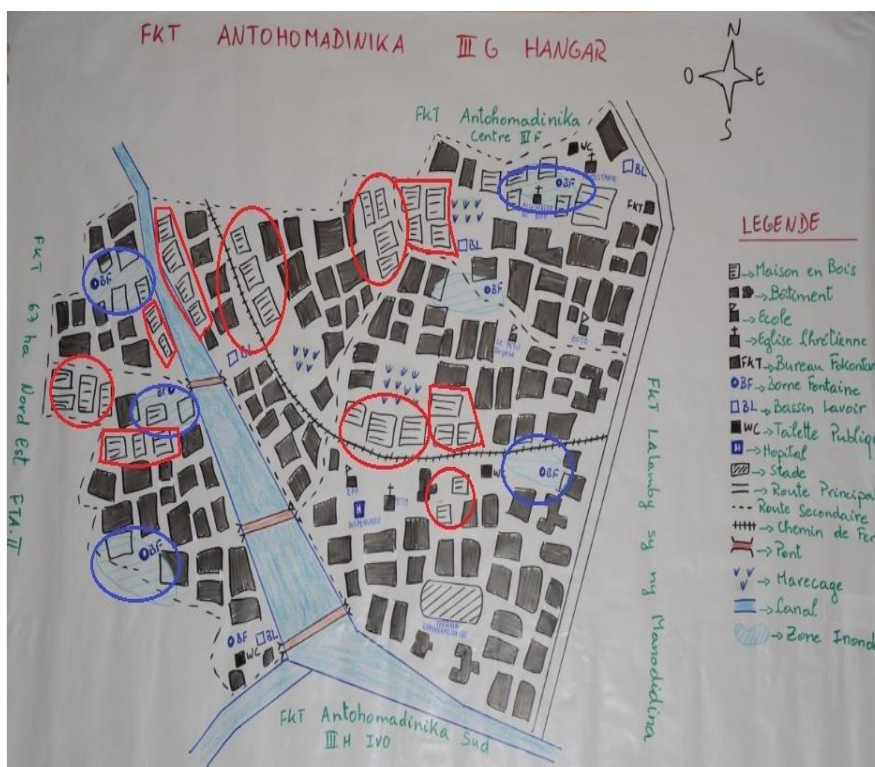 FKT ANTOHOMADINIKA III G HANGAR
N
O E
S
FKT Antohomadinika
Centre III F
WC
BL
BF
FKT
BL
BF
BF
BL
BF
WC
BF
H
BF
BF BL
WC
FKT 67 ha Nord Est
FKT Lalamby sy ny Manodidina
FKT Antohomadinika Sud
III H IVO
LEGENDE
Maison en Bois
Bâtiment
Ecole
Eglise Chrétienne
FKT Bureau Fokontan
BF Borne Fontaine
BL Bassin Lavoir
WC Toilette Publiqu
H Hopital
Stade
Route Principal
Route Secondaire
Chemin de Fer
Pont
Marecage
Canal
Zone Inond